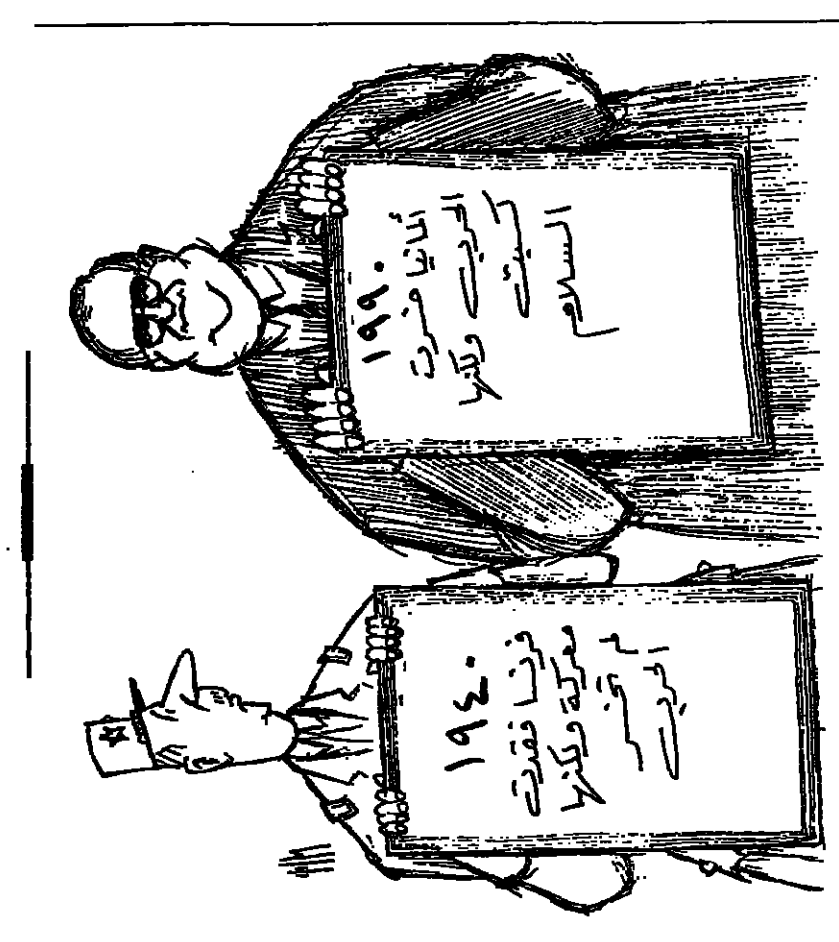 ١٩٩٠
ألمانيا خسرت
الحرب ولكنها
كسبت
السلام
١٩٤٠
فرنسا فقدت
معركة ولكنها
لم تخسر
الحرب